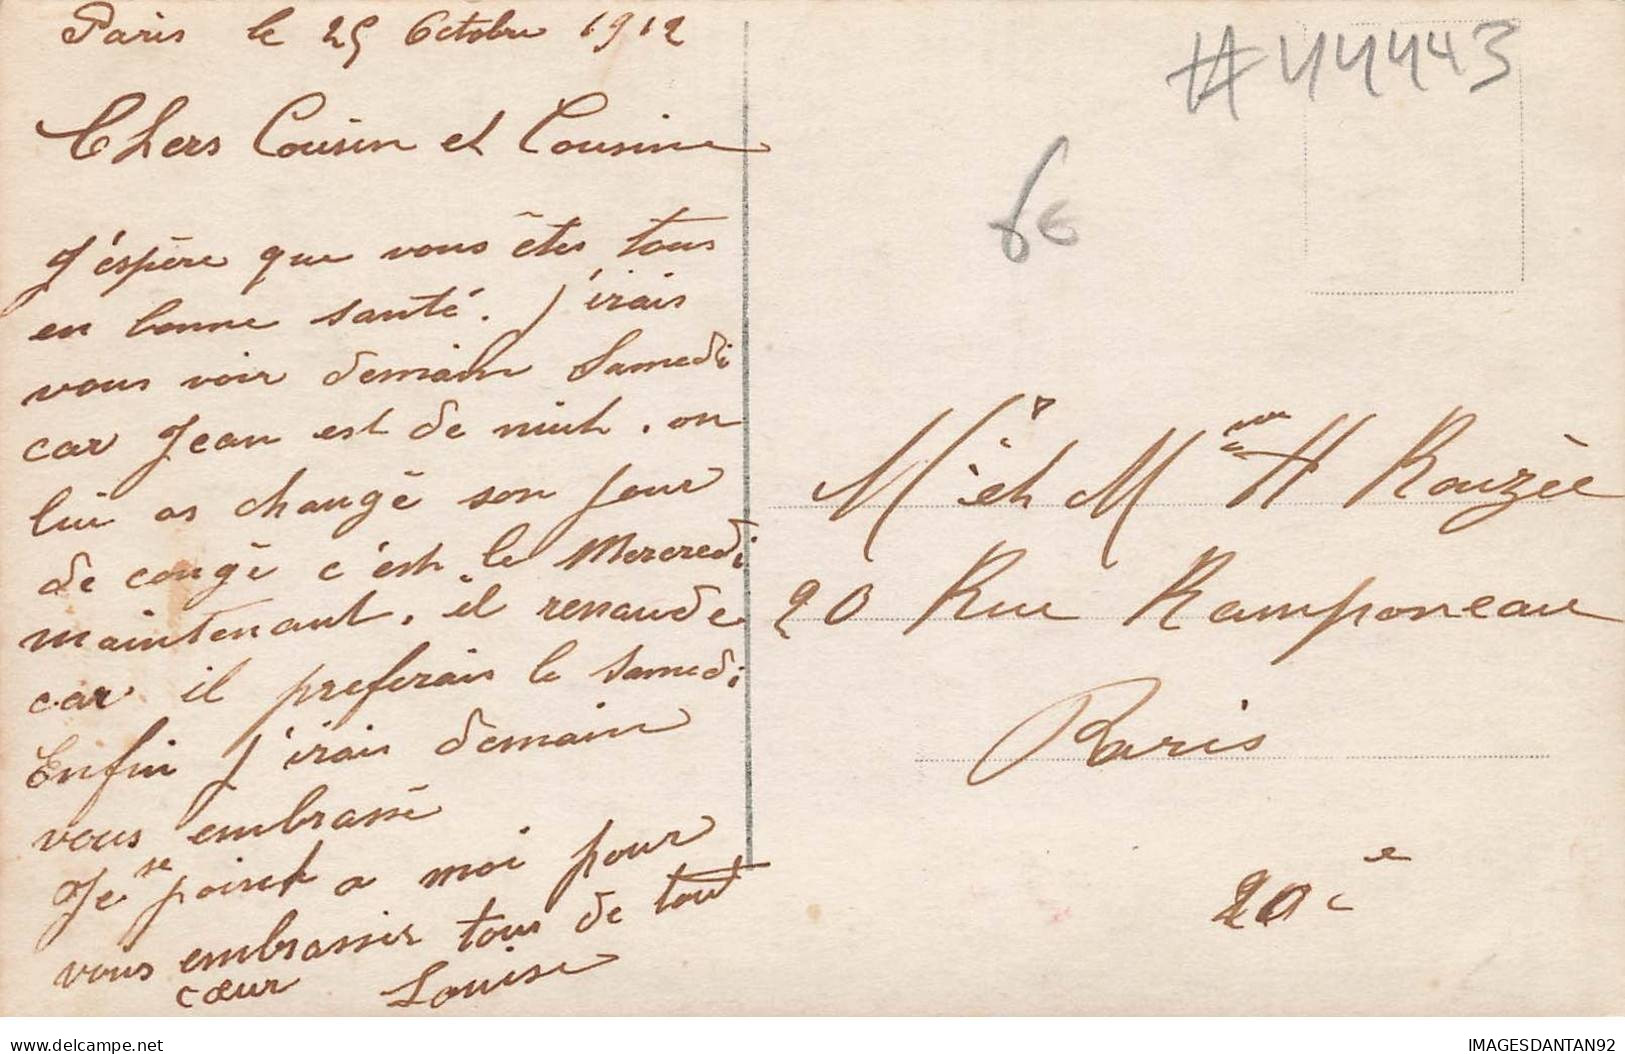 Paris le 25 Octobre 1912
Chers Cousin et Cousine
J'éspère que vous êtes tous
en bonne santé. J'irais
vous voir demain Samedi
car Jean est de nuit. on
lui as changé son jour
de congé c'est le Mercredi
maintenant. il renaude
car il preferais le Samedi
Enfin j'irais demain
vous embrassé
Je se joint a moi pour
vous embrasser tous de tout
cœur Louise
#44443
6€
Mr et Mme H Rouzée
20 Rue Ramponeau
Paris
20e
IMAGESDANTAN92
delcampe.net